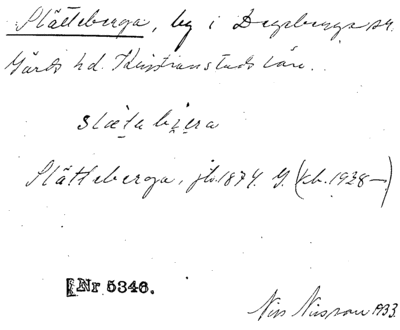 Slätteberga, by i Degeberga sn.
Gärds hd. Kristianstads län.
slæta bæra
Slätteberga, jb. 1874. G. (kb. 1928—)
Nr 5346.
Nils Nilsson 1933.